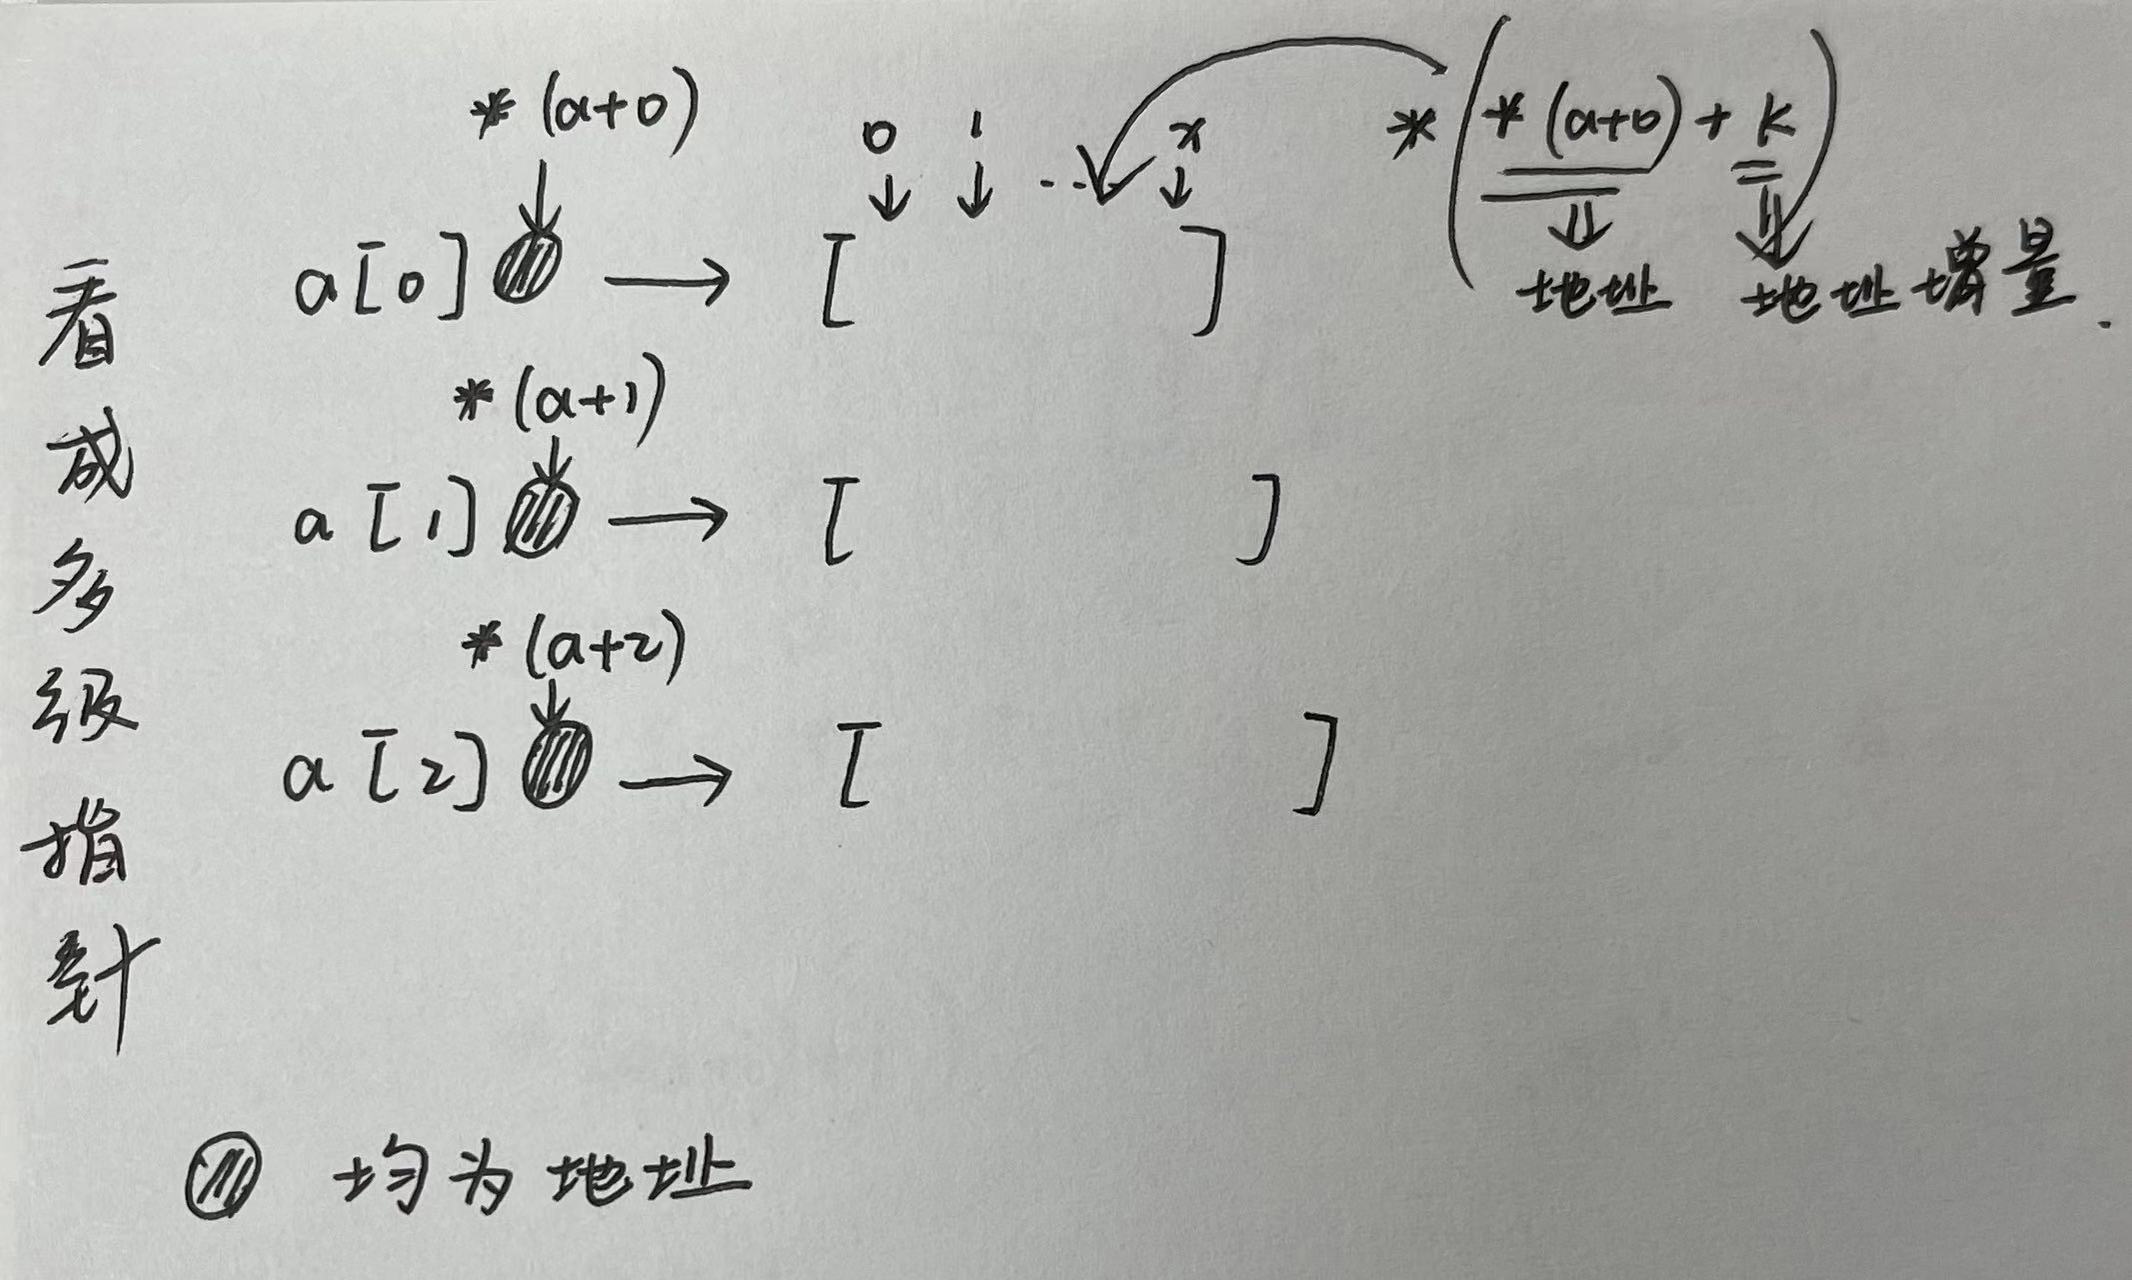 看成多级指针
*(a+0)
0 1 ... x
*(*(a+0)+k)
a[0] → [ ]
地址 地址增量.
*(a+1)
a[1] → [ ]
*(a+2)
a[2] → [ ]
均为地址